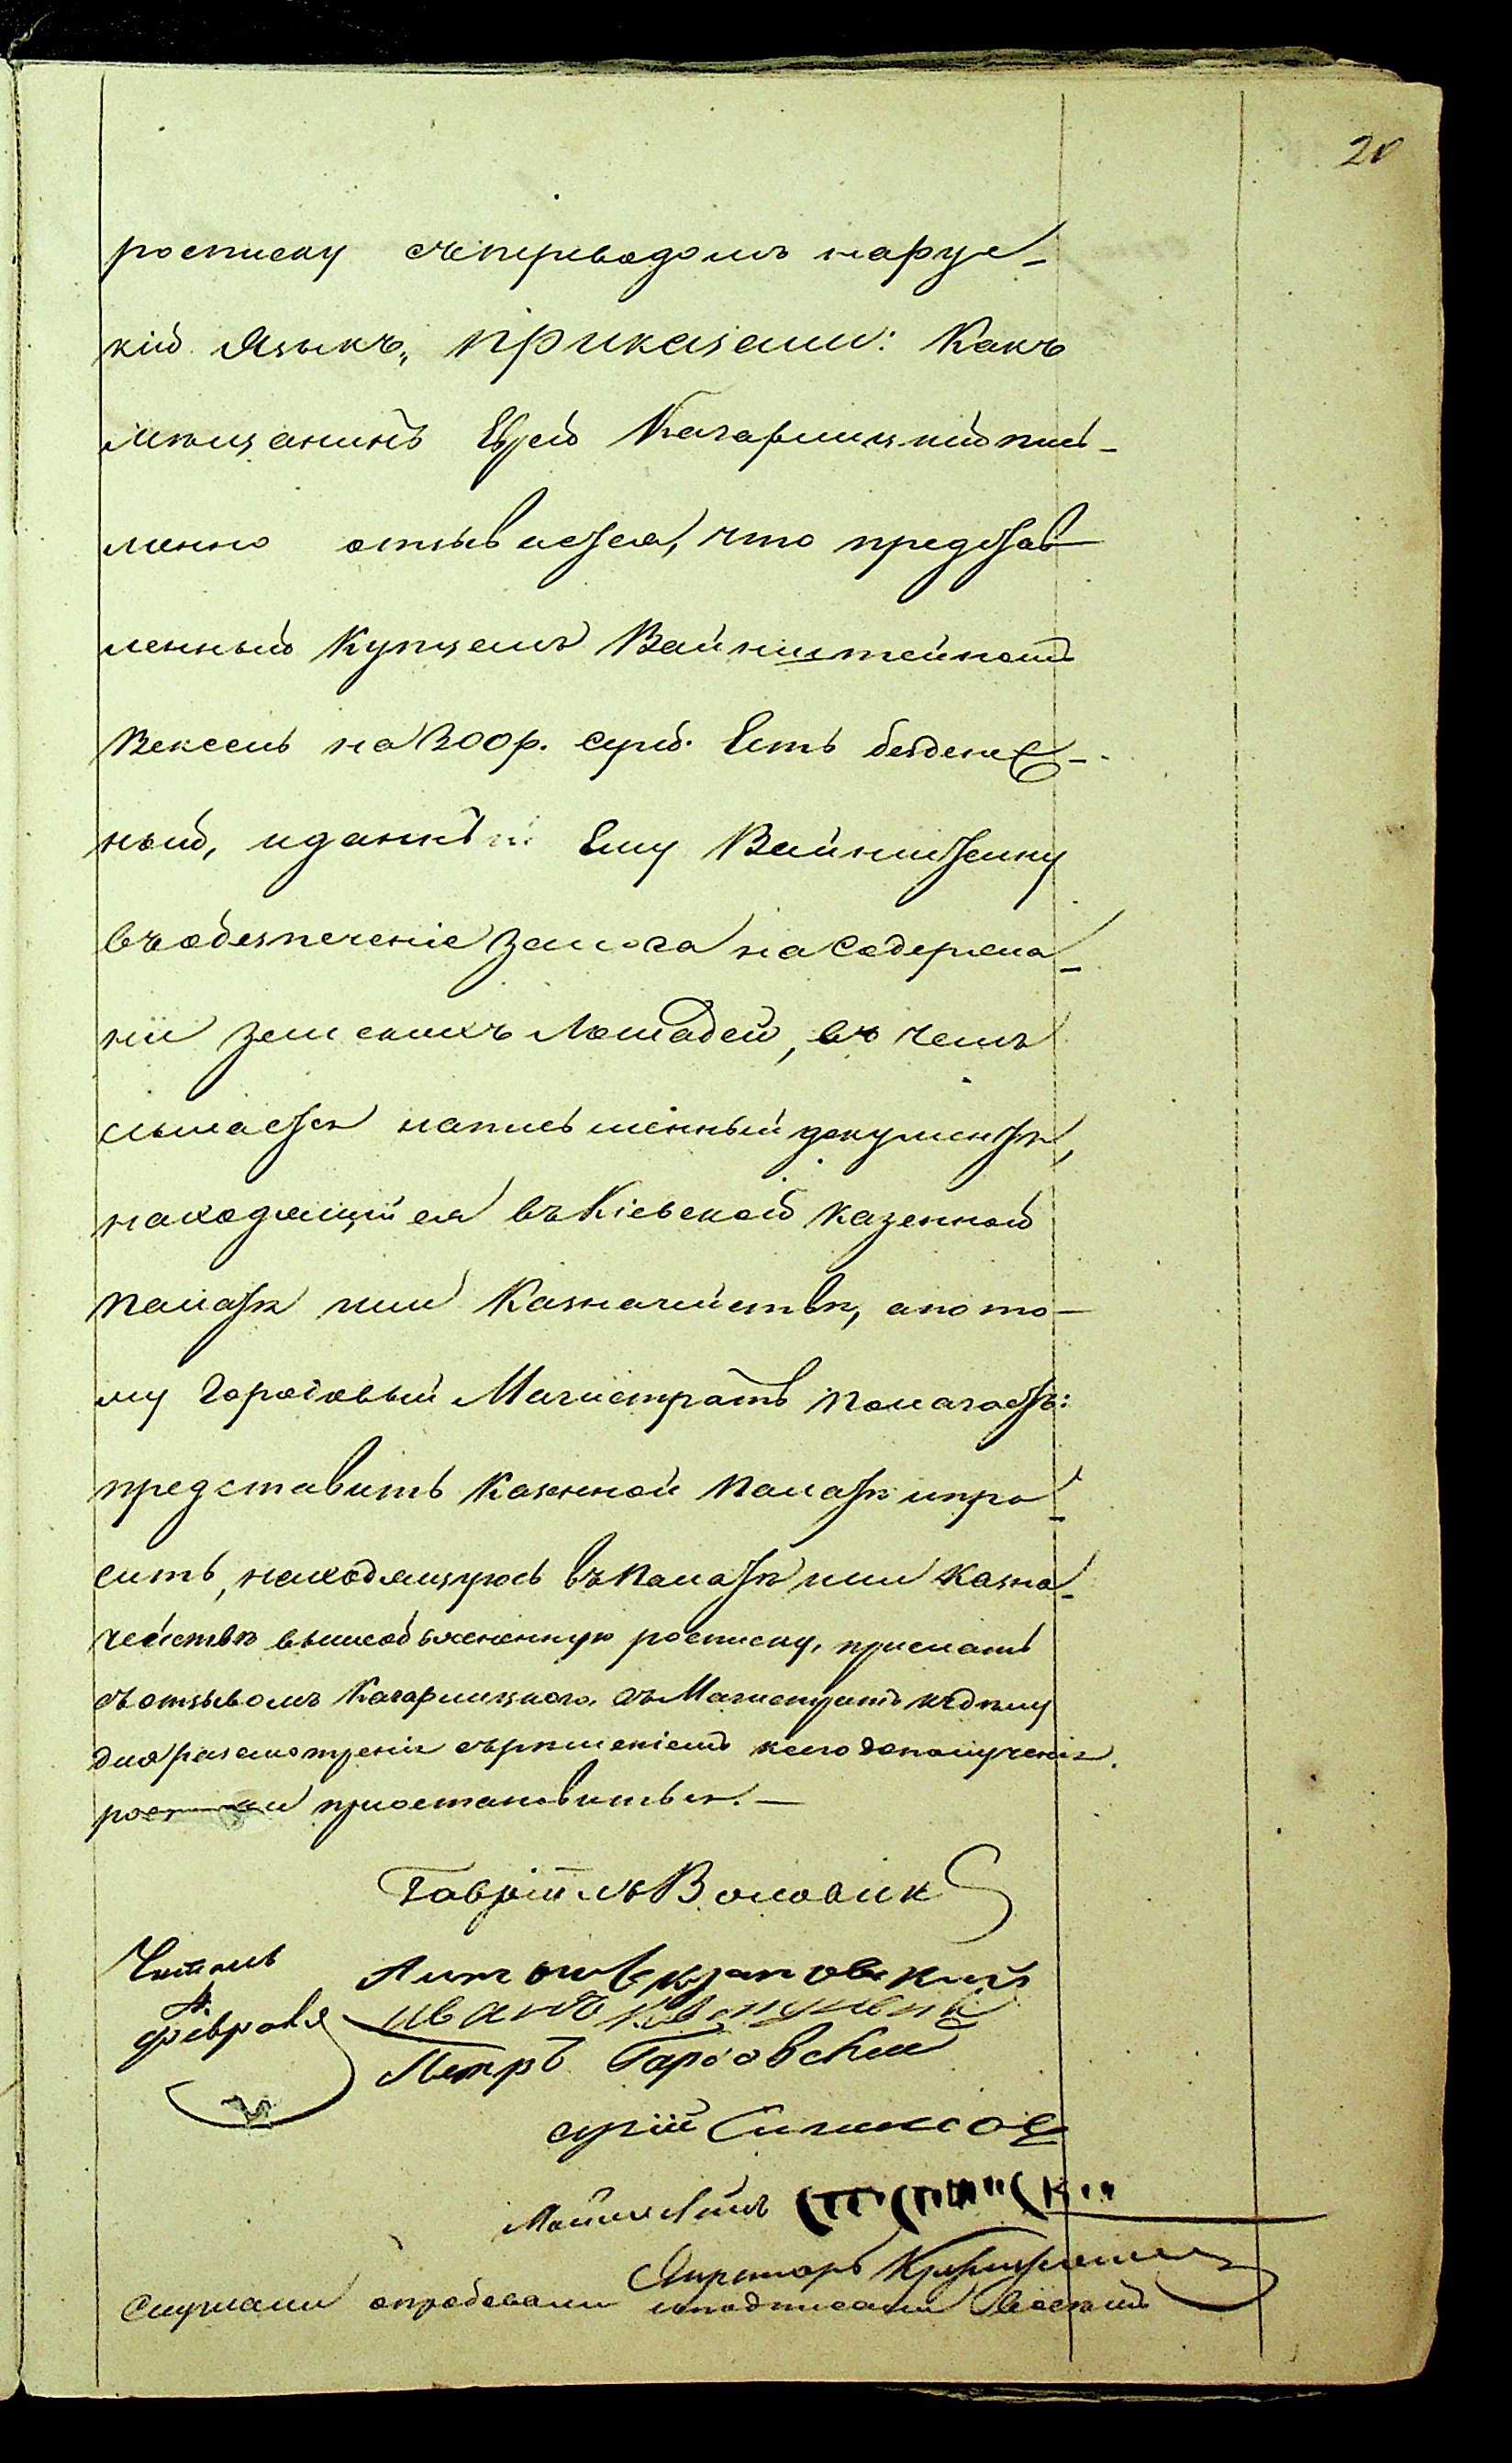 20
росписку съ переводомъ на рус-
кій языкъ, приказали: Какъ
мѣщанинъ Еврей Кагарлицкій пись-
менно отзывается, что представ-
ленный Купцемъ Вайнштейномъ
Вексель на 300 р. сереб. Есть безденеж-
ный, и данный Ему Вайнштейну
въ обезпеченіе залога на Содержа-
ніи земскихъ Лошадей, въ чемъ
сылается на письменный документъ,
находящійся въ Кіевской Казенной
Палатѣ или Казначействѣ, а пото-
му Городовый Магистратъ Полагаетъ:
представить Казенной Палатѣ и про-
сить, находящуюсь въ Палатѣ или Казна-
чействѣ вышеобъясненную росписку, прислать
съ отзывомъ Кагарлицкого въ Магистратъ къ дѣлу
для разсмотренія съ рѣшеніемъ коего до полученія
росписки приостановиться.—
Гавріилъ Воловик
Читалъ
Антонъ
февраля
Иванъ
Петръ Гарбовскій
Юрій
Секретарь
Слушали опробовали и подписали